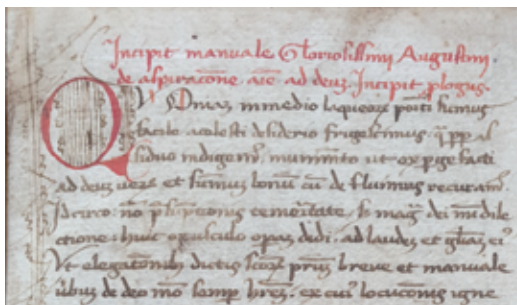 Incipit manuale Gloriosissimi Augustini.
de aspiracone aīe ad deuz. Incipit plogus.
QVOniaz in medio laqueoꝝ positi sumus
facile a celesti desiderio frigescimus. ꝗ ꝓp as
siduo indigemꝰ munimento ut exꝑgefacti
ad deuz uerū et sumum bonū cū de fluimus recuramꝰ
Idcirco nō psūpconis temeritate, sz magͣ dei mei dile
ctione huic opusculo opam dedi. ad laudez et glīam eiꝰ
Ut elegationibꝫ dictis scoꝝ prūm breve et manuale
ūbuz de deo mō semp hrēz. ex cuiꝰ locuconis igne